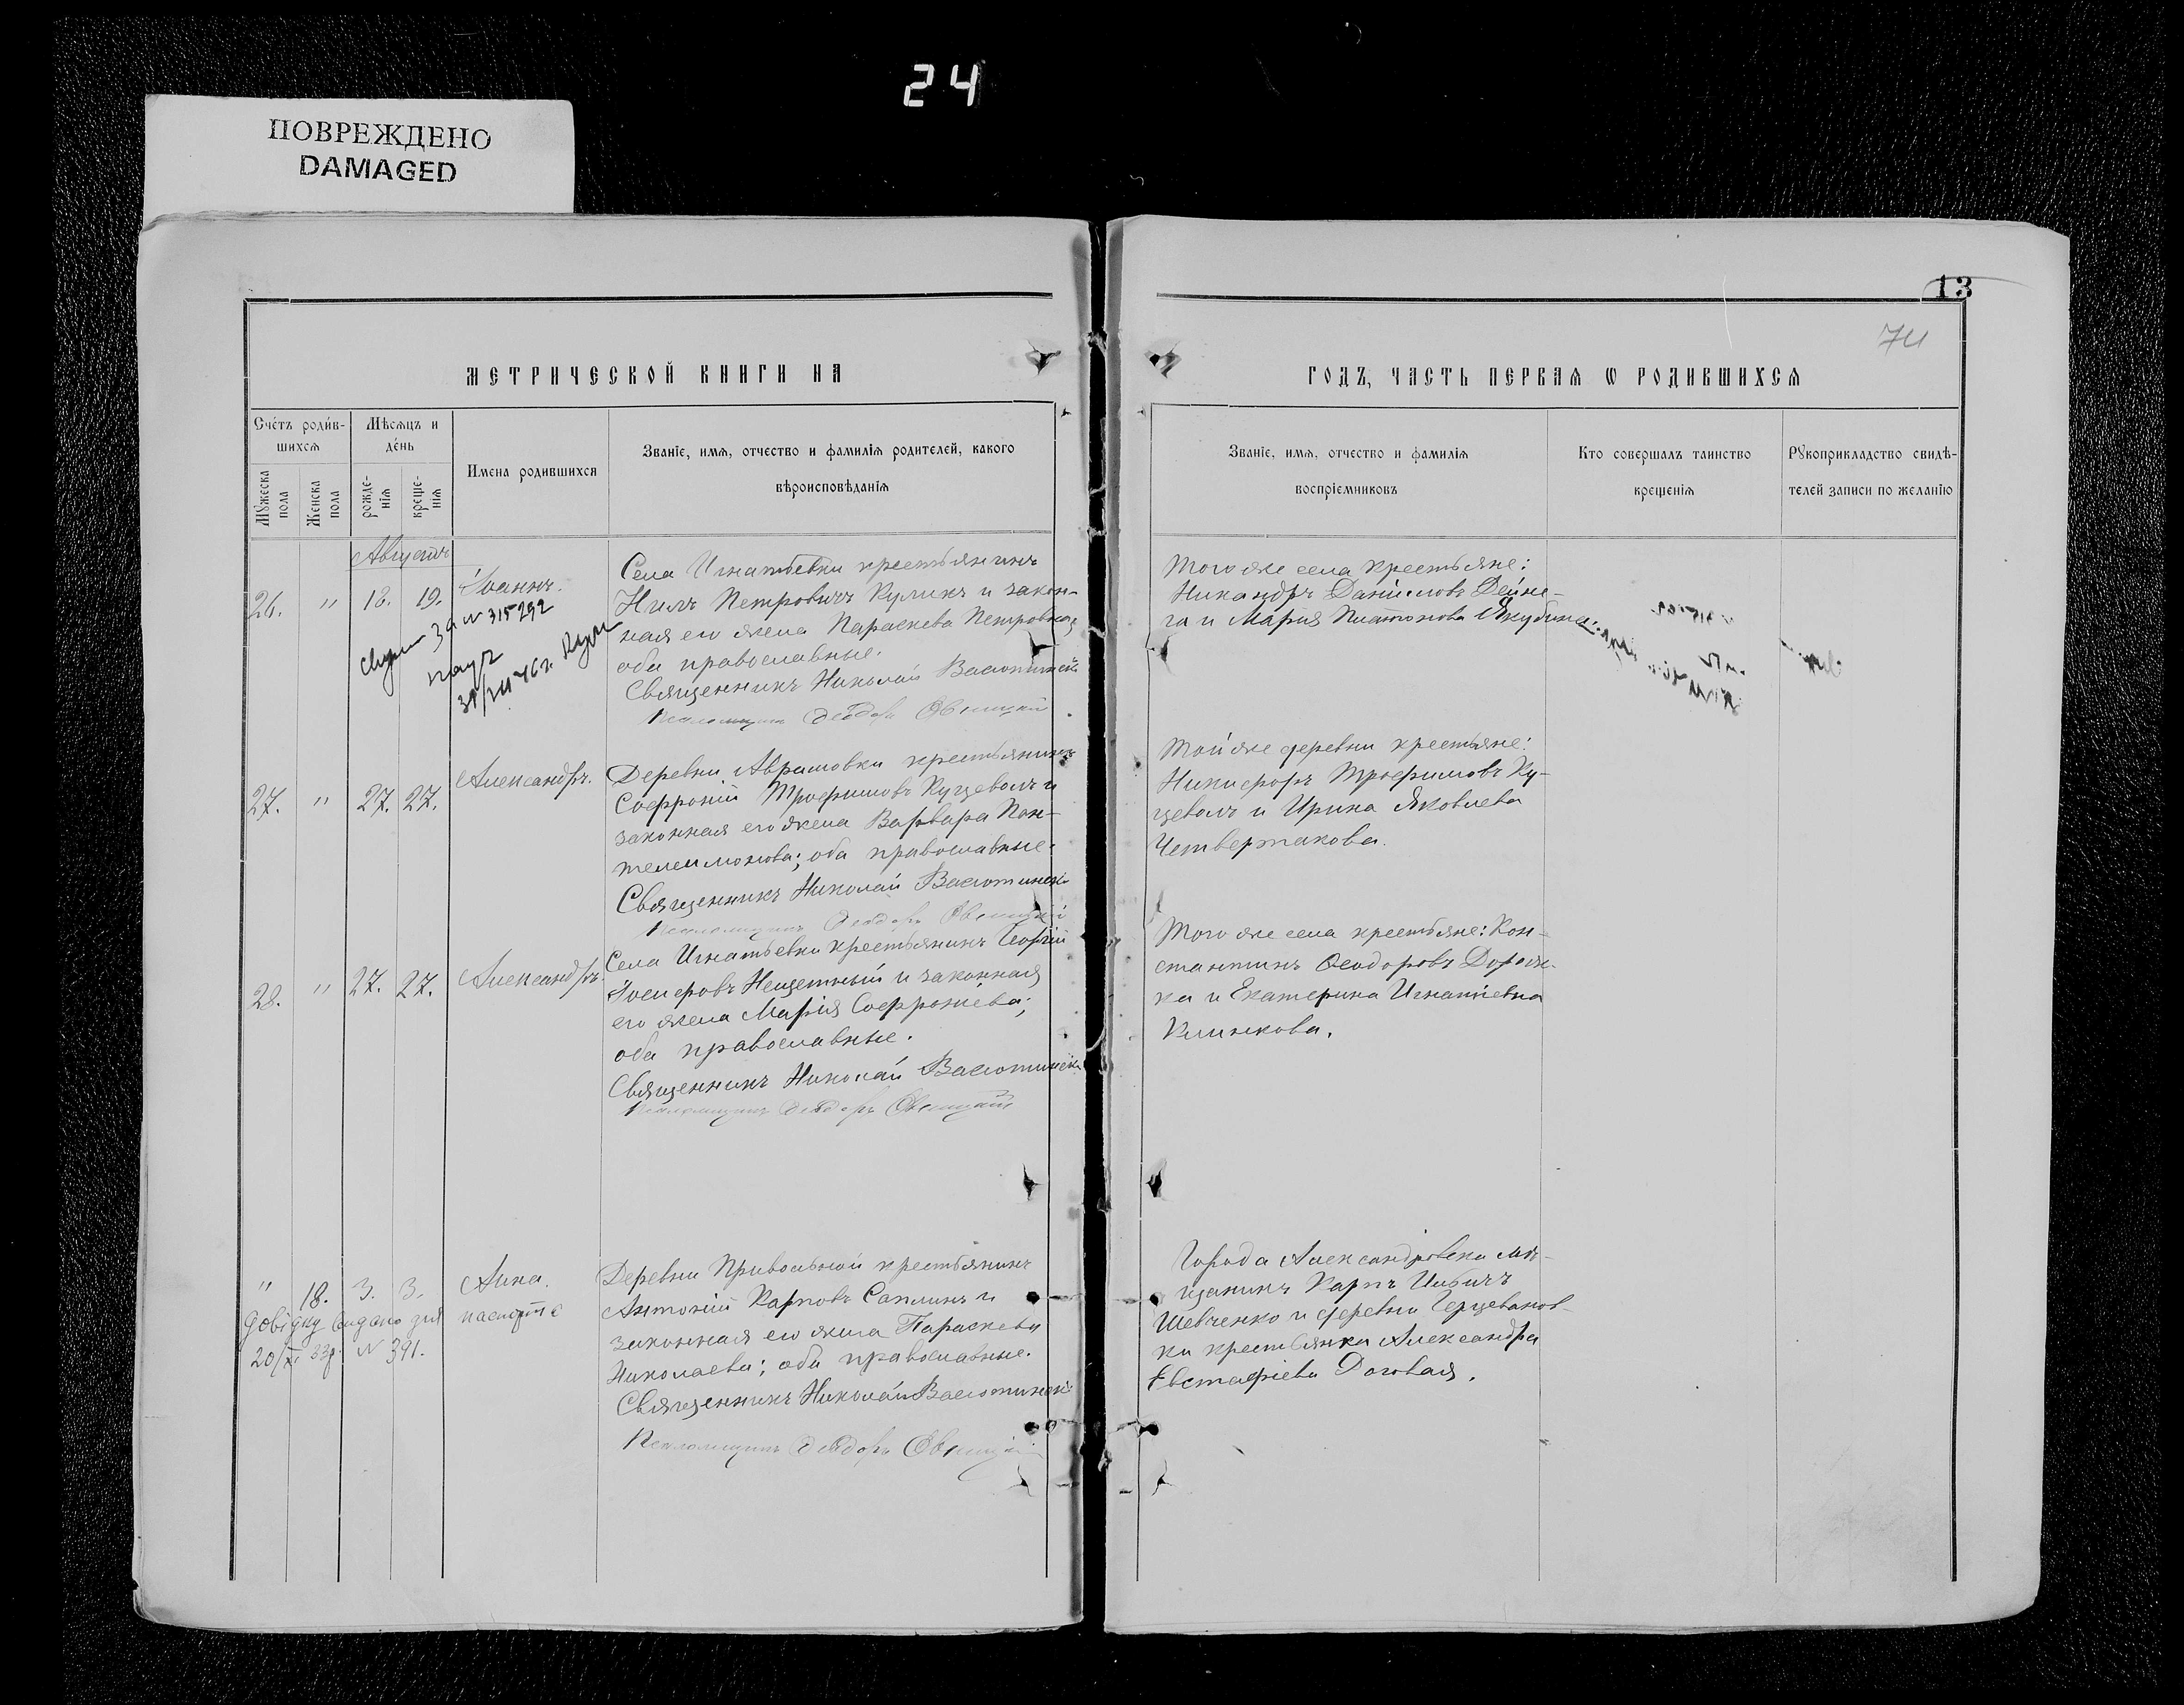 24
ПОВРЕЖДЕНО
DAMAGED
13
74
МЕТРИЧЕСКОЙ КНИГИ НА
ГОДЪ, ЧАСТЬ ПЕРВАЯ Ѡ РОДИВШИХСЯ
Счетъ родив-
шихся
Мѣсяцъ и
день
Мужеска
пола
Женска
пола
рожде-
нія
креще-
нія
Имена родившихся
Званіе, имя, отчество и фамилія родителей, какого
вѣроисповѣданія
Званіе, имя, отчество и фамилія
воспріемниковъ
Кто совершалъ таинство
крещенія
Рукоприкладство свидѣ-
телей записи по желанію
Августъ
26. " 18. 19. Іоаннъ.
ЗА № 315292
Села Игнатьевки крестьянинъ
Нилъ Петровичъ Куликъ и закон-
ная его жена Параскева Петровна;
оба православные.
Священникъ Николай
Псаломщикъ Ѳеодоръ
Того же села крестьяне:
Никандръ Даніиловъ Дейне-
га и Марія Платонова Якубина.
27. " 27. 27. Александръ.
Деревни Аврамовки крестьянинъ
Софроній Трофимовъ Куцеволъ и
законная его жена Варвара Пан-
телеимонова; оба православные.
Священникъ Николай
Псаломщикъ Ѳеодоръ
Той же деревни крестьяне:
Никифоръ Трофимовъ Ку-
цеволъ и Ирина Яковлева
Четвертакова.
28. " 27. 27. Александръ.
Села Игнатьевки крестьянинъ Георгій
Іосифовъ Нещетный и законная
его жена Марія Софроніева;
оба православные.
Священникъ Николай
Псаломщикъ Ѳеодоръ
Того же села крестьяне: Кон-
стантинъ Ѳеодоровъ Дорож-
ка и Екатерина Игнатіевна
Климкова.
" 18. 3. 3. Анна.
Довідку видано для паспорта
20/XI 33р. № 391.
Деревни Привольной крестьянинъ
Антоній Карповъ Саплинъ и
законная его жена Параскева
Николаева; оба православные.
Священникъ Николай
Псаломщикъ Ѳеодоръ
Города Александровска мѣ-
щанинъ Карпъ Ильичъ
Шевченко и деревни Герцеванов-
ки крестьянка Александра
Евстафіева Логовая.